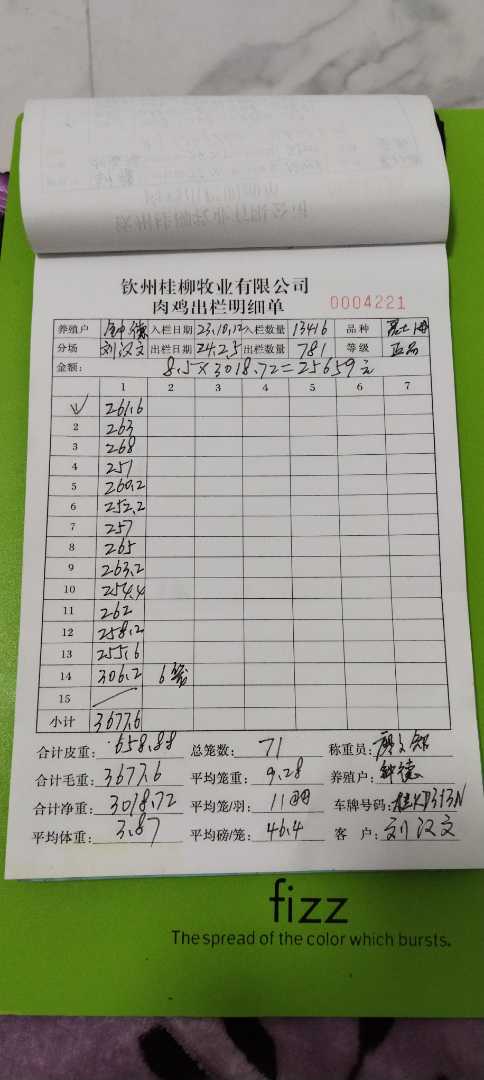 钦州桂柳牧业有限公司
肉鸡出栏明细单 0004221
养殖户 钟德 入栏日期 23.10.12 入栏数量 13416 品种
分场 刘汉文 出栏日期 24.2.5 出栏数量 781 等级 正品
金额: 8.5×3018.72=25659元
1 2 3 4 5 6 7
261.6
2 263
3 268
4 251
5 260.2
6 252.2
7 257
8 265
9 263.2
10 254.4
11 262
12 258.2
13 255.6
14 306.2 6笼
15
小计 3677.6
合计皮重: 658.88 总笼数: 71 称重员:
合计毛重: 3677.6 平均笼重: 9.28 养殖户: 钟德
合计净重: 3018.72 平均笼/羽: 11 车牌号码:
平均体重: 3.87 平均磅/笼: 46.4 客户: 刘汉文
fizz
The spread of the color which bursts.